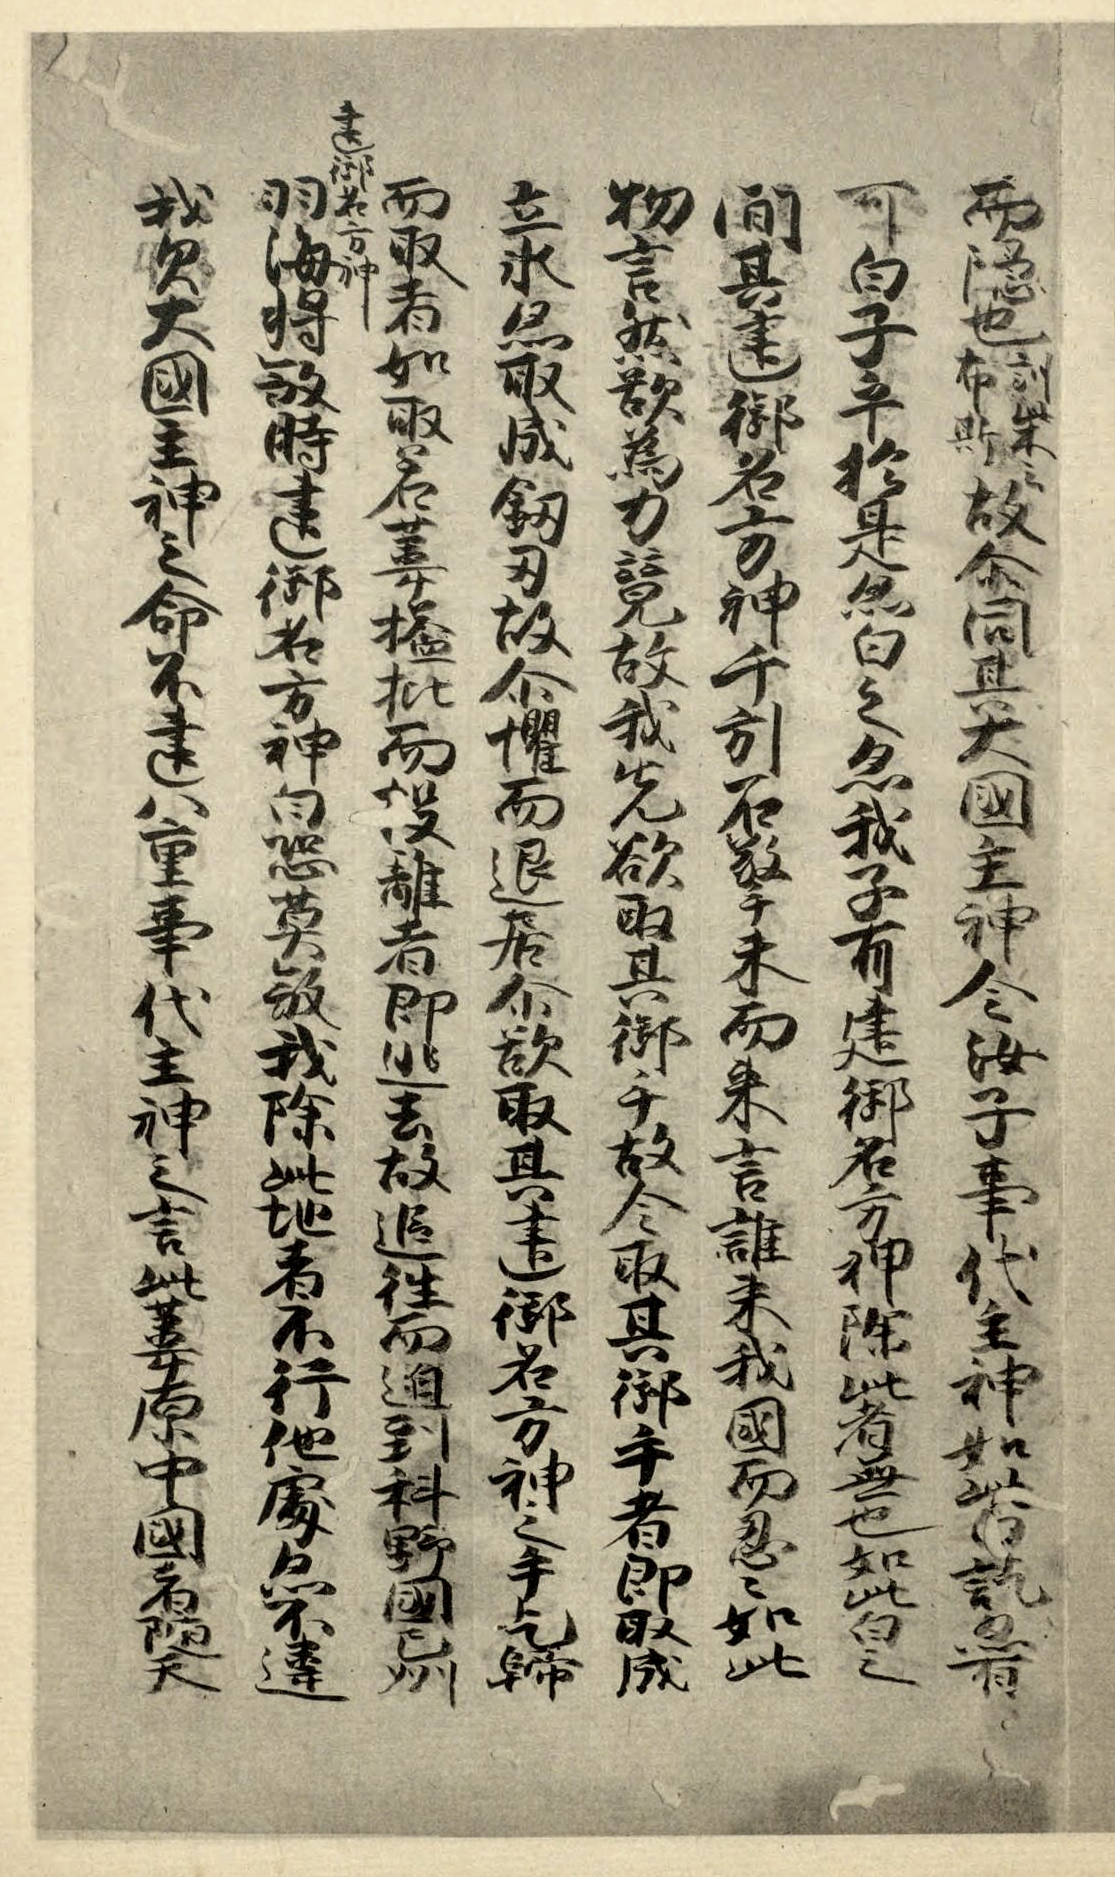 而隠也訓柴云布斯故尒問其大國主神今汝子事代主神如此白訖亦有
可白子乎於是亦白之亦我子有建御名方神除此者無也如此白之
間其建御名方神千引石擎手末而来言誰来我國而忍〻如此
物言然欲為力競故我先欲取其御手故令取其御手者即取成
立氷亦取成釼刃故尒懼而退居尒欲取其建御名方神之手乞歸
而取者如取若葦搤批而投離者即逃去故追往而迫到科野國之州
建御名方神
羽海将殺時建御名方神白恐莫殺我除此地者不行他處亦不違
我父大國主神之命不違八重事代主神之言此葦原中國者随天